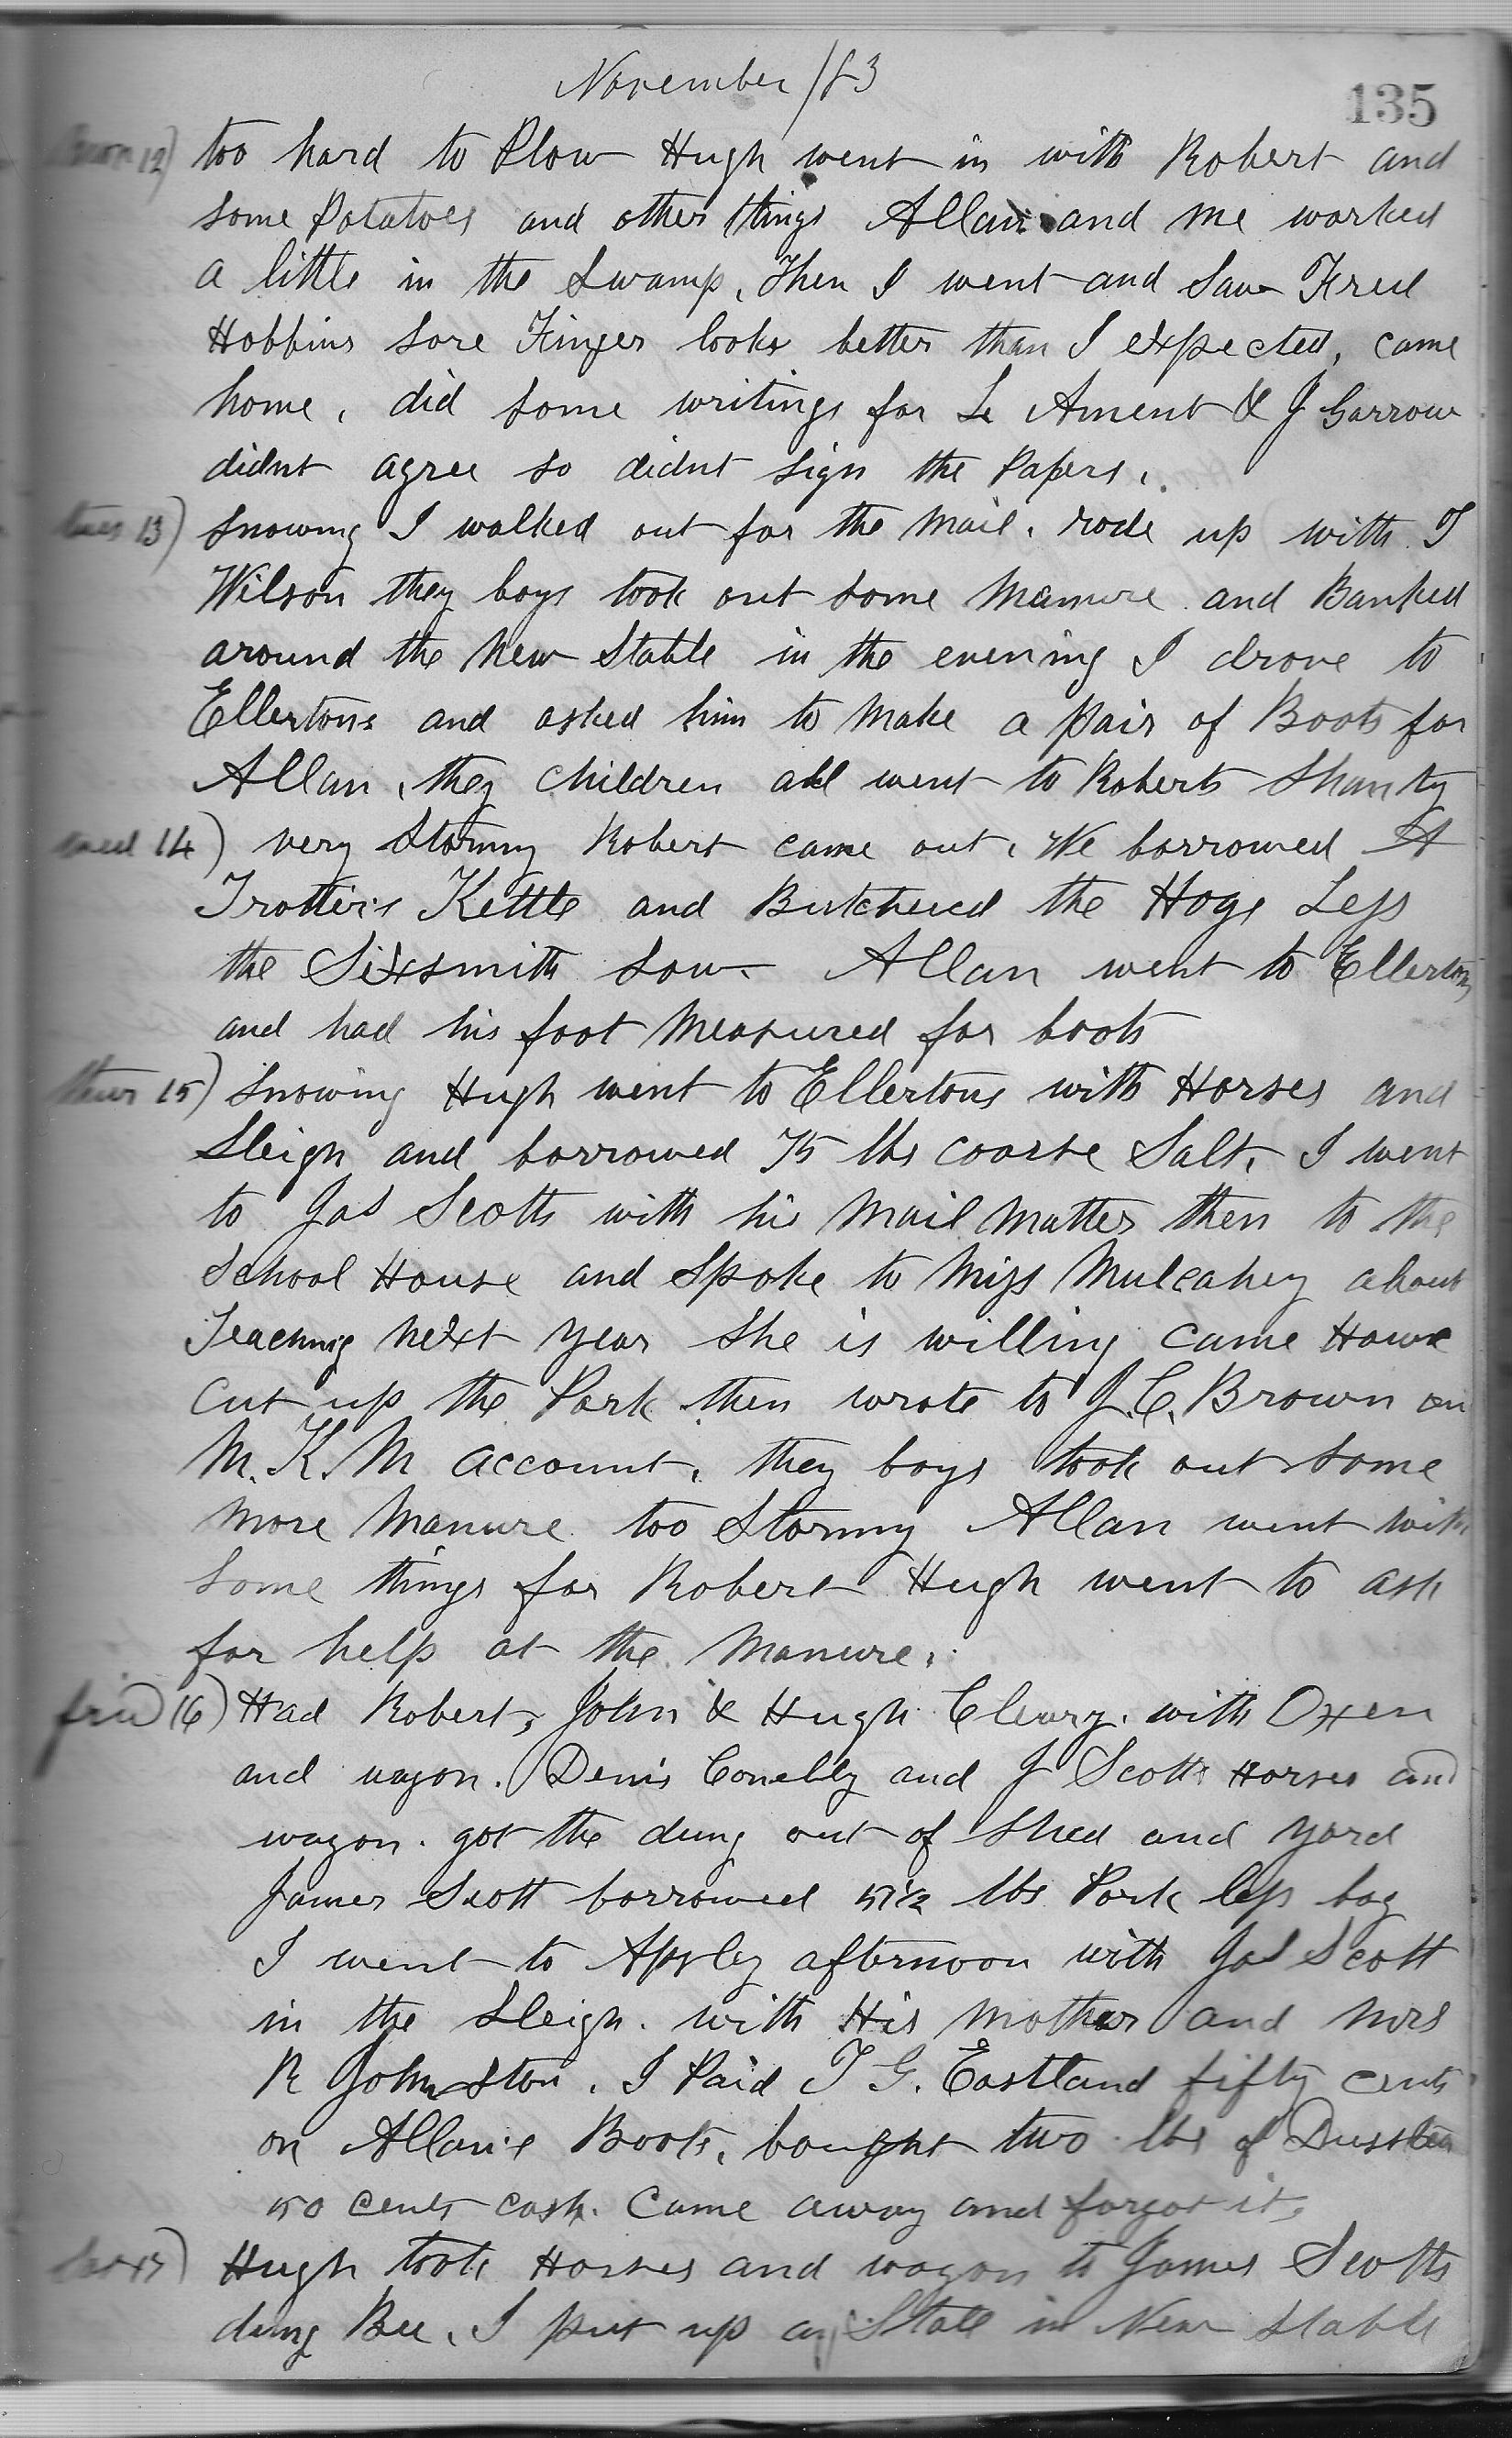 November /83
135
mon 12) too hard to Plow Hugh went in with Robert and
some Potatoes and other things Allan and me worked
a little in the Swamp, Then I went and Saw Fred
Hobbins Sore Finger looks better than I expected, came
home, did some writings for L Ament & J Garrow
didnt agree so didnt sign the Papers.
tues 13) Snowing I walked out for the Mail. rode up with T
Wilson they boys took out some Manure and Banked
around the New Stable in the evening I drove to
Ellertons and asked him to Make a Pair of Boots for
Allan, they Children all went to Roberts Shanty
wed 14) very Stormy Robert came out, We borrowed A
Trotter's Kettle and Butchered the Hogs Less
the Sixsmith Sow. Allan went to Ellertons
and had his foot Measured for boots
thur 15) Snowing Hugh went to Ellertons with Horses and
Sleigh and borrowed 75 lbs coarse Salt, I went
to Jas Scotts with his Mail Matter then to the
School House and Spoke to Miss Mulcahey about
Teaching Next Year She is willing Came Home
Cut up the Pork then wrote to J.C. Brown on
M. K. M account, they boys took out some
More Manure too Stormy Allan went with
Some things for Robert Hugh went to ask
for help at the Manure.
frid 16) Had Robert, John & Hugh Cleary. with Oxen
and wagon. Denis Conelly and J Scotts Horses and
wagon. got the dung out of Shed and Yard
James Scott borrowed 51½ lbs Pork less bag
I went to Apsley afternoon with Jas Scott
in the Sleigh. with His Mother and Mrs
R Johnston. I Paid T G. Eastland fifty cents
on Allan's Boots, bought two lbs of Dusstea
50 cents cash. Came away and forgot it,
Sat 17) Hugh took Horses and wagon to James Scotts
dung Bee. I put up a Stall in New Stable